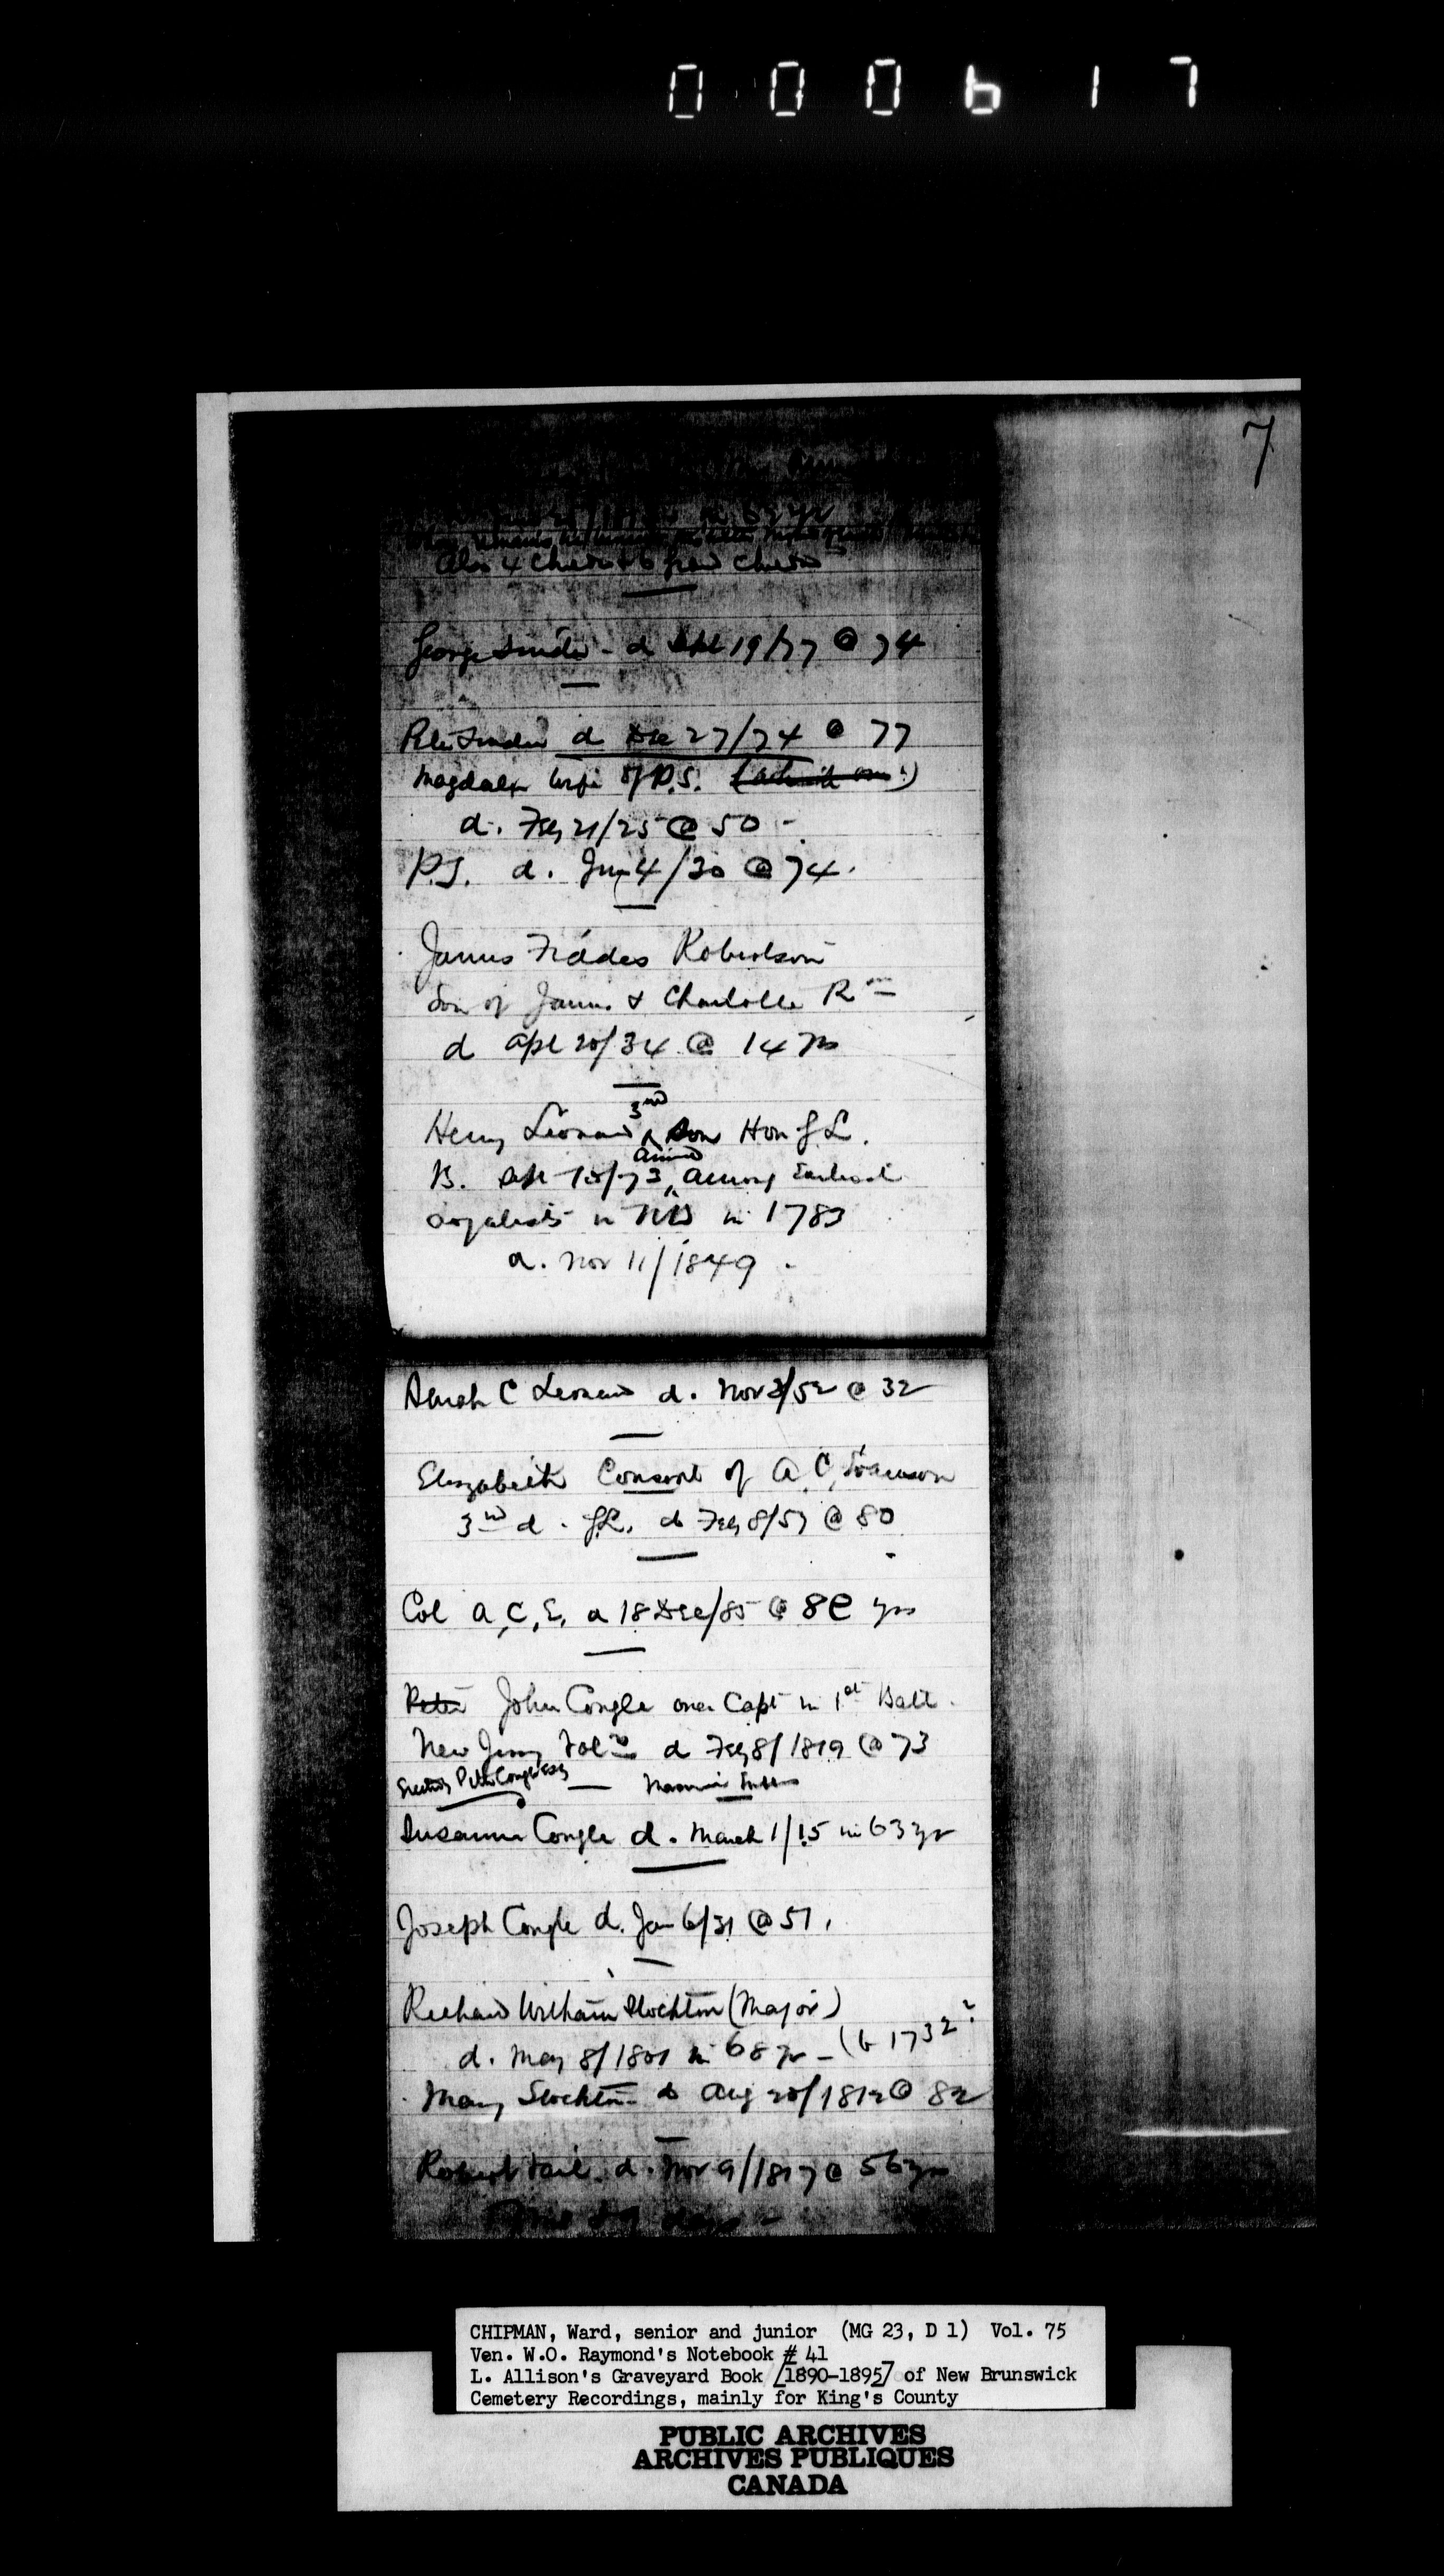 000617
7
Also 4 Childn & 6 Grand Childn
George Snider - d Sept 19/77 @ 74
Peter Snider d Dec 27/74 @ 77
Magdalen wife of P.S.
d. Feby 21/25 @ 50 -
P.S. d. 4/30 @ 74.
James Fraides Robertson
Son of James & Charlotte R
d Apl 20/34 @ 14 yrs
Henry Leonard 3rd Son Hon G.L.
B. Sept 15/73, arrived among Earliest
Loyalists in NB in 1783
d. Nov 11/1849 -
Sarah C Leonard d. Nov 3/52 @ 32
Elizabeth Consort of A.C. Evanson
3rd d. G.L. d Feby 8/57 @ 80
Col A, C, E, d 18 Dec/85 @ 80 yrs
Peter John Congle once Capt in 1st Batt.
New Jersey Vol d Feby 8/1819 @ 73
Erected by Peter Congle Esq
Susanna Congle d. March 1/15 in 63 yr
Joseph Congle d. Jan 6/31 @ 51.
Richard William Stockton (Major)
d. May 8/1801 in 68 yr - (b 1732?
Mary Stockton d Aug 20/1812 @ 82
Robert d. Nov 9/1817 @ 56 yrs
days -
CHIPMAN, Ward, senior and junior (MG 23, D 1) Vol. 75
Ven. W.O. Raymond's Notebook # 41
L. Allison's Graveyard Book [1890-1895] of New Brunswick
Cemetery Recordings, mainly for King's County
PUBLIC ARCHIVES
ARCHIVES PUBLIQUES
CANADA